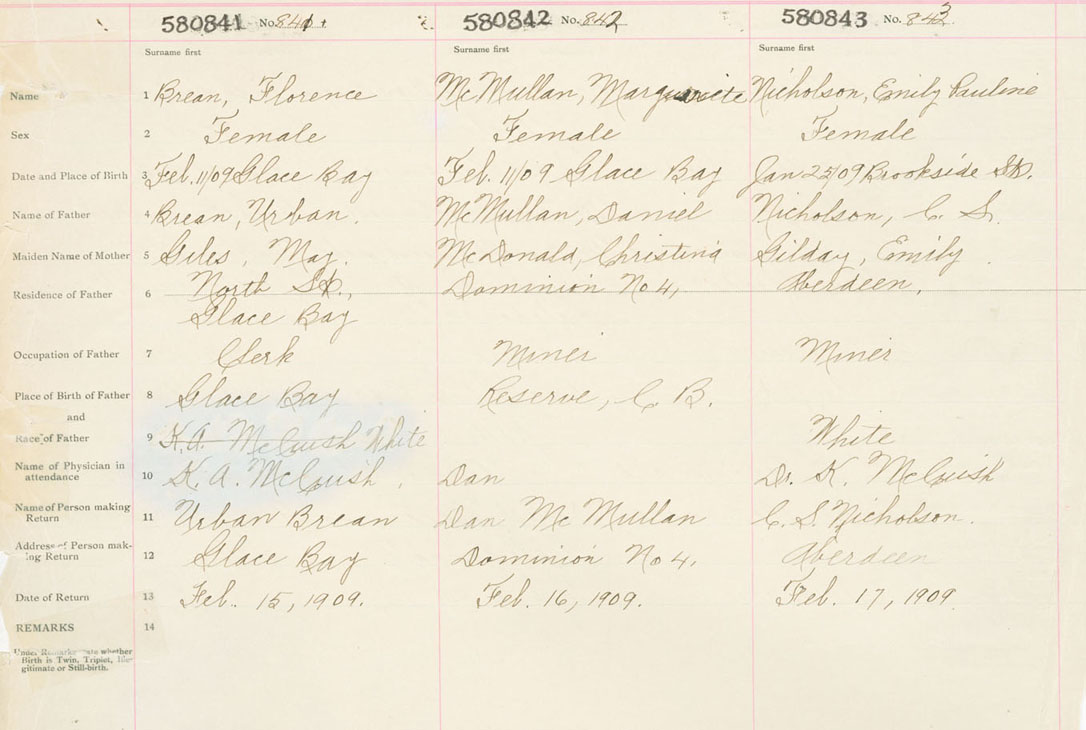 580841 No. 841 580842 No. 842 580843 No. 843
Surname first Surname first Surname first
Name 1 Brean, Florence McMullan, Marguerite Nicholson, Emily Pauline
Sex 2 Female Female Female
Date and Place of Birth 3 Feb. 11/09 Glace Bay Feb. 11/09 Glace Bay Jan 25/09 Brookside St.
Name of Father 4 Brean, Urban. McMullan, Daniel Nicholson, C. S.
Maiden Name of Mother 5 Giles, May. McDonald, Christina Gilday, Emily
Residence of Father 6 North St., Dominion No 4, Aberdeen,
Glace Bay
Occupation of Father 7 Clerk Miner Miner
Place of Birth of Father 8 Glace Bay Reserve, C. B.
and
Race of Father 9 K. A. McCuish White White
Name of Physician in
attendance 10 K. A. McCuish, Dan Dr. K. McCuish
Name of Person making
Return 11 Urban Brean Dan McMullan C. S. Nicholson.
Address of Person mak-
ing Return 12 Glace Bay Dominion No 4. Aberdeen
Date of Return 13 Feb. 15, 1909. Feb. 16, 1909. Feb. 17, 1909
REMARKS 14
Under Remarks state whether
Birth is Twin, Triplet, Ille-
gitimate or Still-birth.